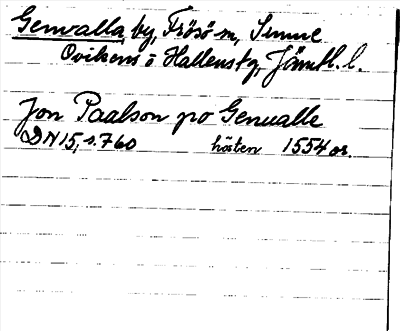 Genvalla, by, Frösö sn, Sunne
Ovikens o Hallens tg, Jämtl. l.
Jon Paalson po Genualle
DN 15, s. 760 hösten 1554 or.